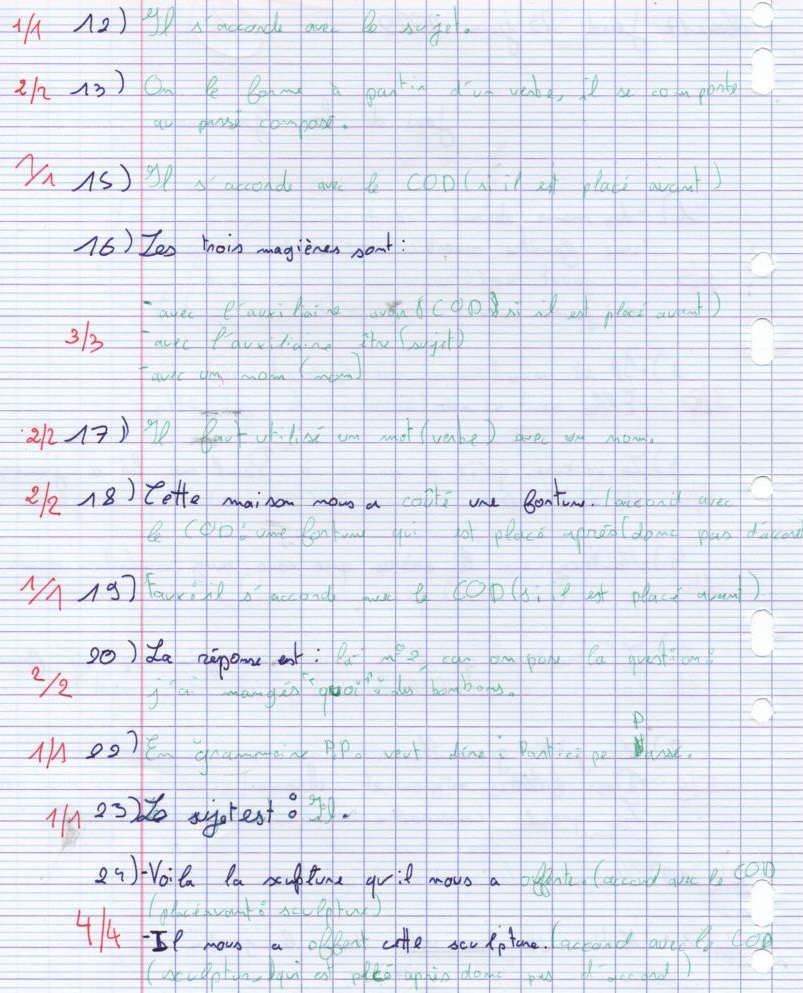 1/1 12) Il s'accorde avec le sujet.
2/2 13) On le forme à partir d'un verbe, il se comporte
au passé composé.
1/1 15) Il s'accorde avec le COD (si il est placé avant)
16) Les trois magières sont :
- avec l'auxiliaire avoir (COD si il est placé avant)
3/3 - avec l'auxiliaire être (sujet)
- avec un nom (nom)
2/2 17) Il faut utilisé un mot (verbe) avec un nom.
2/2 18) Cette maison nous a coûté une fortune. (accord avec
le COD : une fortune qui est placé après (donc pas d'accord
1/1 19) Faux : il s'accorde avec le COD (si il est placé avant)
20) La réponse est : la n°2, car on pose la question :
2/2 j'ai mangés "quoi" : des bombons.
1/1 22) En grammaire P.P. veut dire : Participe Passé.
1/1 23) Le sujet est : Il.
24) - Voila la sculpture qu'il nous a offerte. (accord avec le COD
(placé avant : sculpture)
4/4 - Il nous a offert cette sculpture. (accord avec le COD
(sculpture) qui est placé après donc pas d'accord)